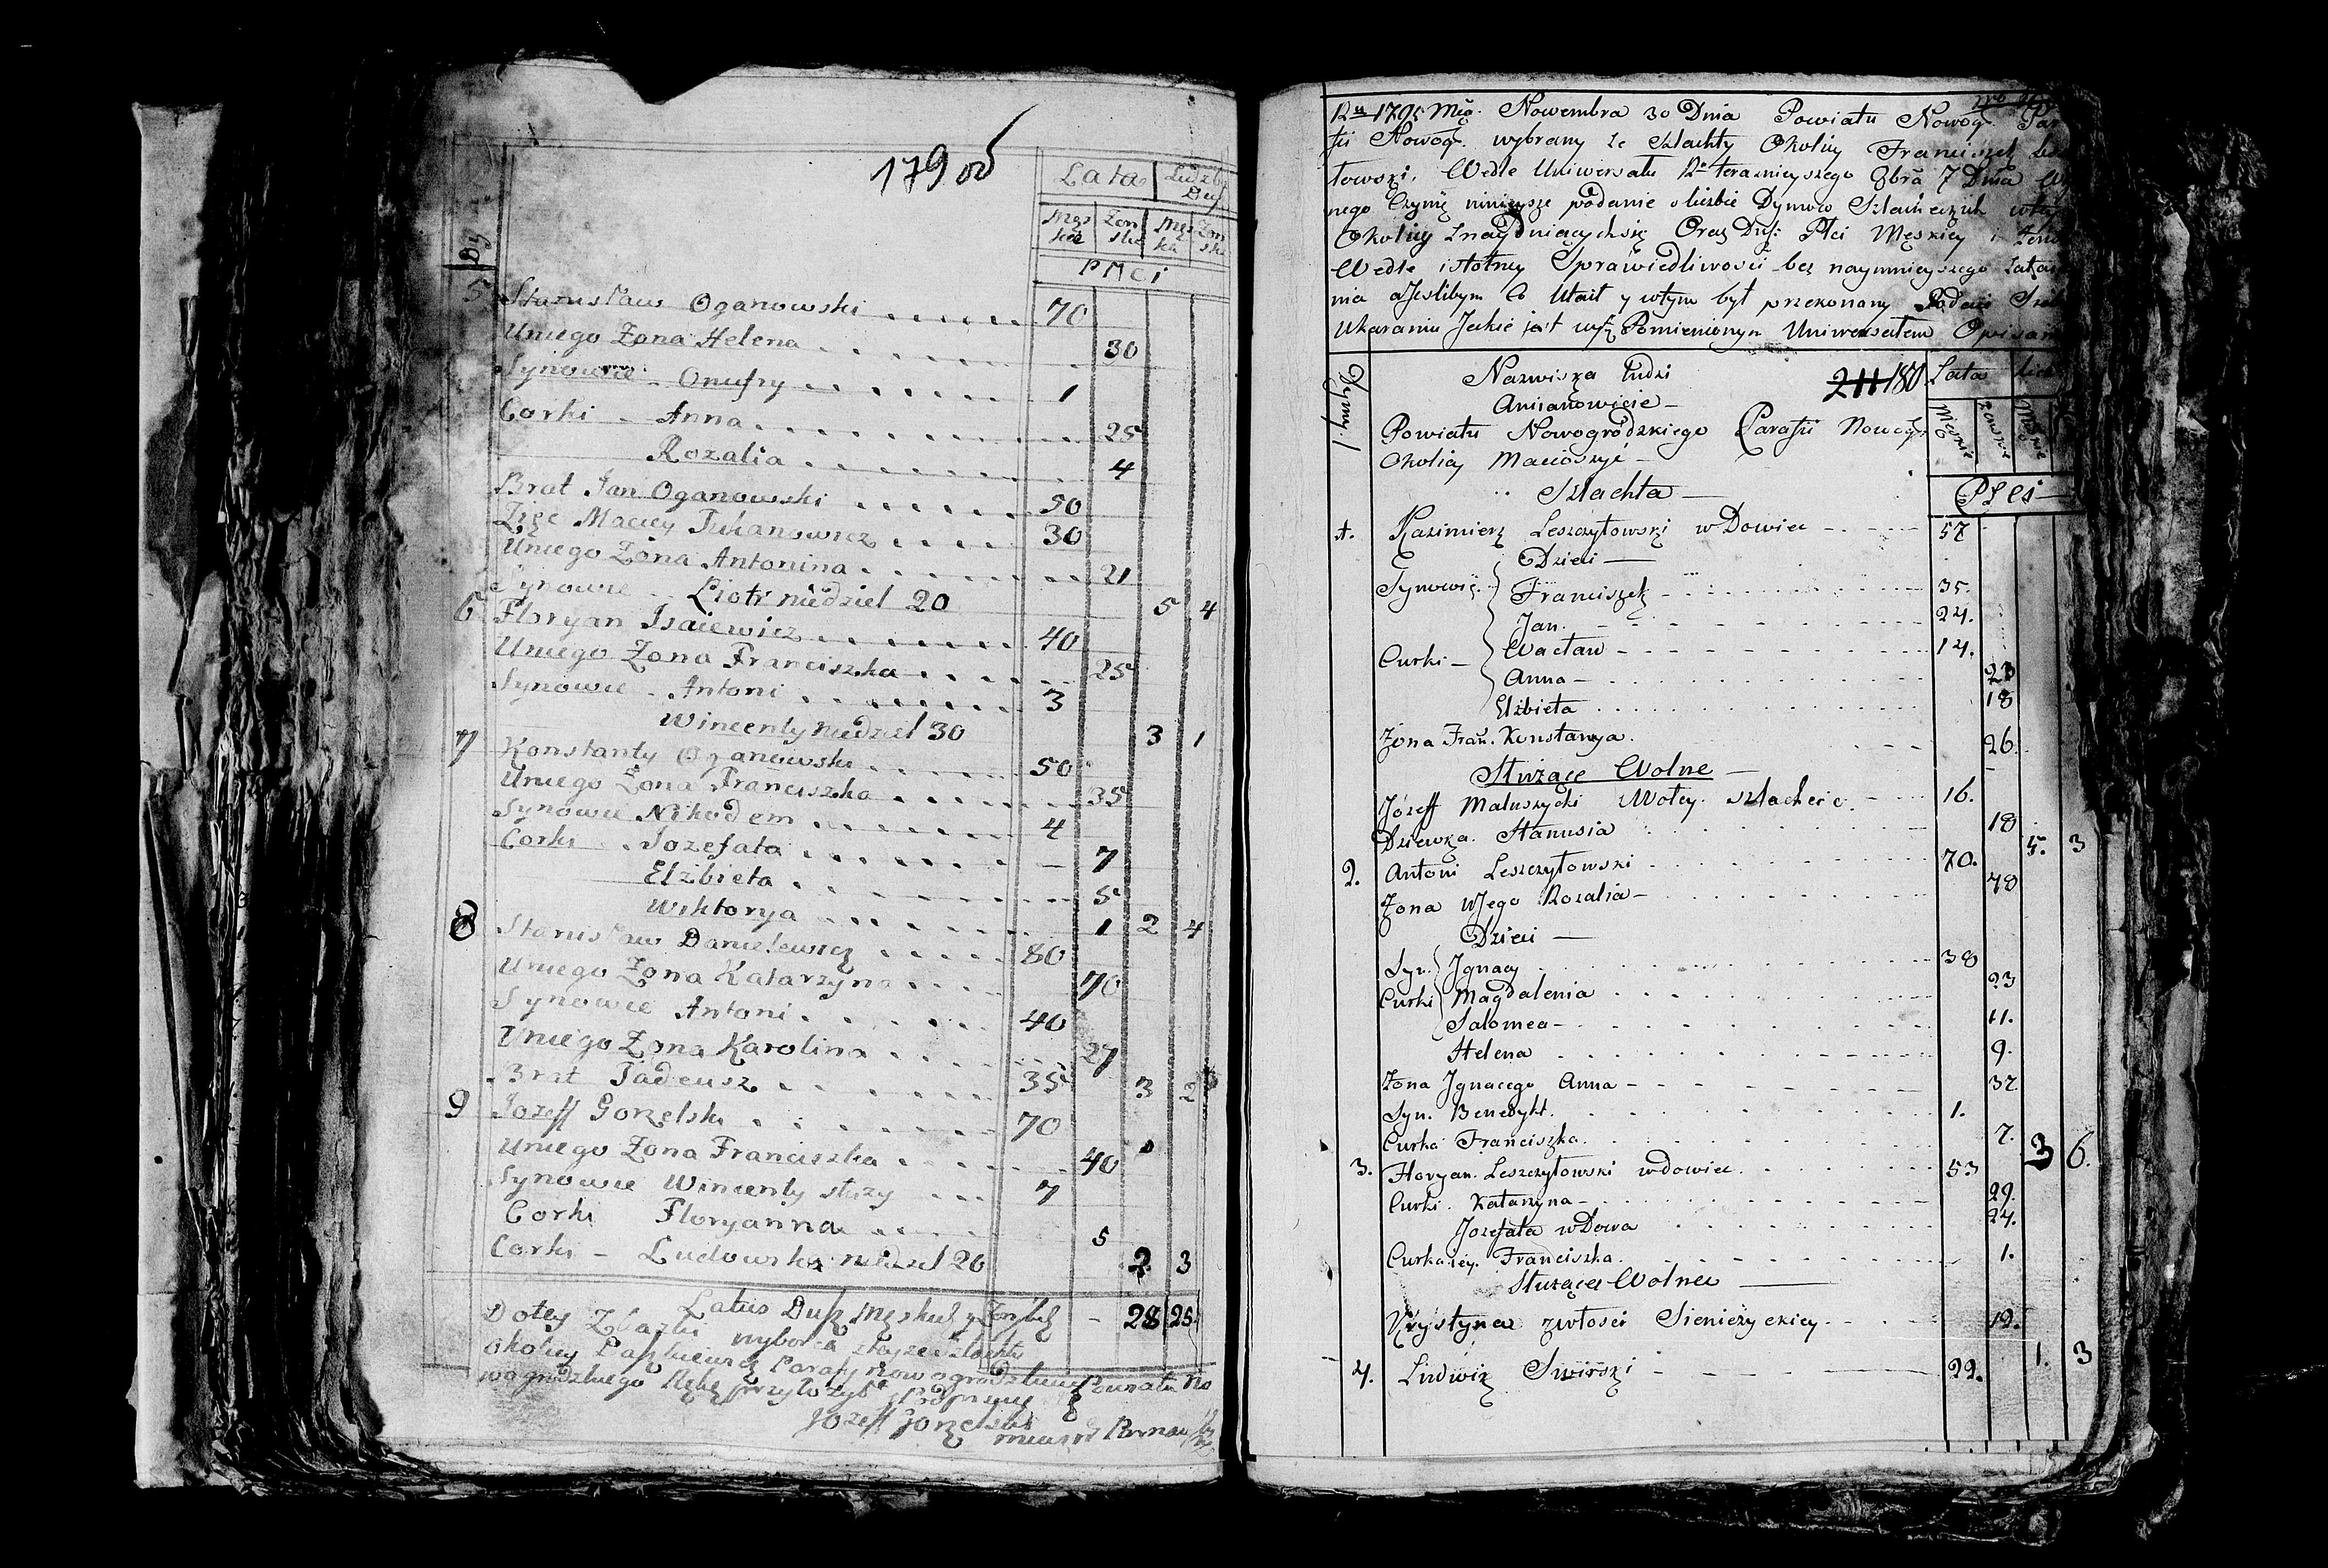 179 об
Lata Liczba Dusz
Męs kie Żon skie Męs kch Żon skch
Płci
5 Stanisław Oganowski 70
Uniego Żona Helena 30
Synowie - Onufry 1
Corki - Anna 25
Rozalia 4
Brat Jan Oganowski 50
Zięc Maciey Tuhanowicz 30
Uniego Żona Antonina 21
Synowie Piotr niedziel 20 5 4
6 Floryan Isaiewicz 40
Uniego Żona Franciszka 25
Synowie - Antoni 3
Wincenty Niedziel 30 3 1
7 Konstanty Oganowski 50
Uniego Żona Franciszka 35
Synowie Nikodem 4
Corki Jozefata 7
Elżbieta 5
Wiktorya 1 2 4
8 Stanisław Danielewicz 80
Uniego Żona Katarzyna 70
Synowie Antoni 40
Uniego Żona Karolina 27
Brat Tadeusz 35 3 2
9 Jozeff Gorzelski 70
Uniego Żona Franciszka 40
Synowie Wincenty służy 7
Corki Floryanna 5
Corki - Ludowika niedziel 20 2 3
Latus Dusz Męskich y Żońskich - 28 25
Dotey
okolicy Parafy Nowogrodzkiey Powiatu No
wogrodzkiego Rękę przyłożył
Jozeff Gorzelski
Ru 1795 Mca Nowembra 30 Dnia Powiatu Nowog. Par
fii Nowog. wybrany ze Szlachty Okolicy Franciszek
towski. Wedle Uniwersału Ru teraznieyszego 8bra 7 Dnia
nego Czynię ninieysze podanie o liczbie Dymow Szlacheckich wtey
Okolicy Znayduiących się Oraz Dusz Płci Męskiey i
Wedle istotney Sprawiedliwosci bez naymnieyszego Zata
nia a Jeslibym Co Utaił y wtym był przekonany Podaię Sie
Ukaraniu Jakie jest wysz Pomienionym Uniwersałem Opisan
Dymy Nazwiska ludzi 211 180 Lata
Amianowicie -
Męskie Żenskie Męskie
Powiatu Nowogrodzkiego Parafii Nowog.
Okolicy Macioszyc -
Szlachta - Płci
1. Kazimierz Leszczytowski wDowiec 57
Dzieci -
Synowie Franciszek 35.
Jan. 24.
Wacław 14.
Curki - Anna 23
Elżbieta 18
Żona Fran. Konstancya. 26
Służące Wolne
Józeff Matuszycki Wolny szlachcic. 16.
Dziewka. Stanusia 18 5. 3
2. Antoni Leszczytowski 70.
Żona Wjego Rozalia 78
Dzieci -
Syn. Jgnacy 38
Curki Magdalenia 23
Salomea 11.
Helena 9.
Żona Jgnacego Anna 37
Syn. Benedykt. 1.
Curka Franciszka. 7. 3 6.
3. Floryan. Leszczytowski wdowiec. 53
Curki. Katarzyna 29.
Jozefata wDowa 24.
Curka iey. Franciszka. 1.
Służąca Wolna
Krystyna zwłosci Sienieżyckiey. 12. 1. 3
4. Ludwik Swirski 22.